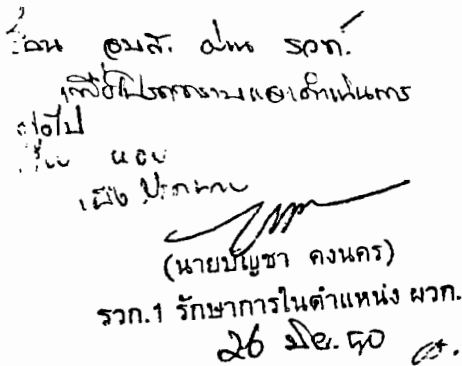 เรียน อบส. ผ่าน รวต.
เพื่อโปรดทราบและดำเนินการ
ต่อไป
เรียน
เพื่อ
(นายบัญชา คงนคร)
รวก.1 รักษาการในตำแหน่ง ผวก.
26 มิย. 50